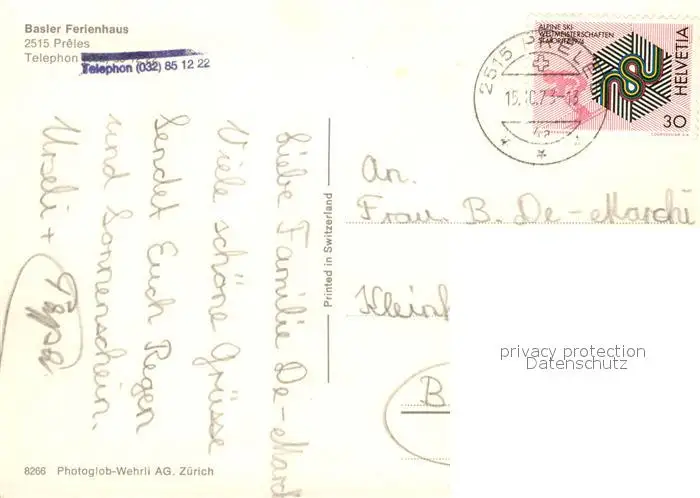 Basler Ferienhaus
2515 Prêles
Telephon
Telephon (032) 85 12 22
Liebe Familie De-Mard
Viele schöne Grüsse
sendet Euch Regen
und Sonnenschein.
Urseli +
Papa
Printed in Switzerland
8266 Photoglob-Wehrli AG. Zürich
ALPINE SKI-
WELTMEISTERSCHAFTEN
ST. MORITZ 1974
HELVETIA
30
COURVOISIER S.A.
2515 PRELES
15.10.73-13
An.
Frau. B. De-Marchi
Klein
B
privacy protection
Datenschutz